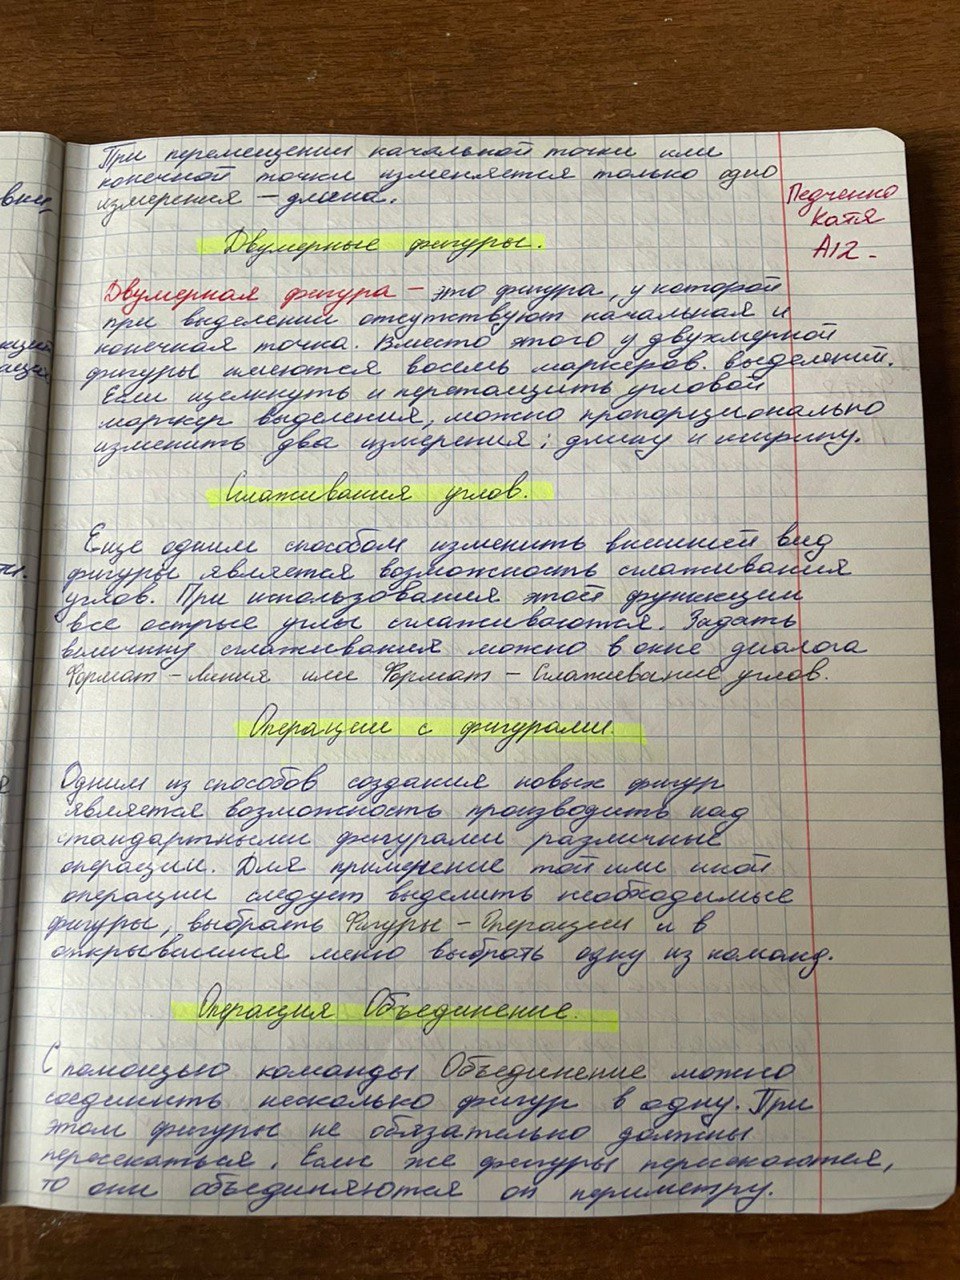 При перемещении начальной точки или
конечной точки изменяется только одно
измерения – длина.
Педченко
Катя
А12.
Двумерные фигуры.
Двумерная фигура – это фигура, у которой
при выделении отсутствуют начальная и
конечная точка. Вместо этого у двухмерной
фигуры имеются восемь маркеров. выделений.
Если щелкнуть и перетащить угловой
маркер выделения, можно пропорционально
изменить два измерения: длину и ширину.
Сглаживания углов.
Еще одним способом изменить внешней вид
фигуры является возможность сглаживания
углов. При использования этой функции
все острые углы сглаживаются. Задать
величину сглаживания можно в окне диалога
Формат – линия или Формат – Сглаживание углов.
Операции с фигурами.
Одним из способов создания новых фигур
является возможность производить над
стандартными фигурами различные
операции. Для применение той или иной
операции следует выделить необходимые
фигуры, выбрать Фигуры – Операции и в
открывшимся меню выбрать одну из команд.
Операция Объединение.
С помощью команды Объединение можно
соединить несколько фигур в одну. При
этом фигуры не обязательно должны
пересекаться. Если же фигуры пересекаются,
то они объединяются оп периметру.